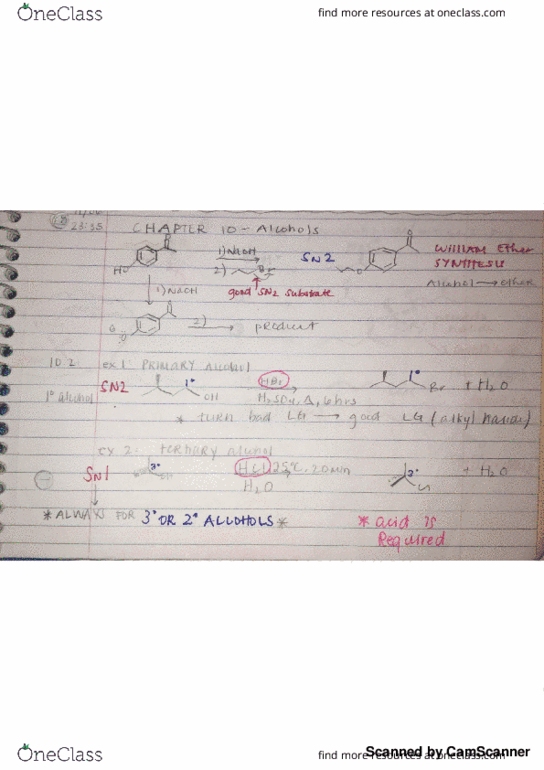 OneClass
find more resources at oneclass.com
23:55
CHAPTER 10 - Alcohols
1) NaOH
SN2
William Ether
SYNTHESIS
2)
Br
HO
good SN2 substrate
Alcohol → ether
1) NaOH
2)
product
10.2 ex 1: PRIMARY Alcohol
1° alcohol
SN2
1°
OH
HBr
H2SO4, Δ, 6hrs
1°
Br
+ H2O
* TURN bad LG → good LG (alkyl halides)
ex 2: TERTIARY alcohol
SN1
3°
OH
HCl, 25°C, 20min
H2O
3°
Cl
+ H2O
* ALWAYS FOR 3° OR 2° ALCOHOLS *
* acid is
Required
OneClass
find more resources at oneclass.com
Scanned by CamScanner